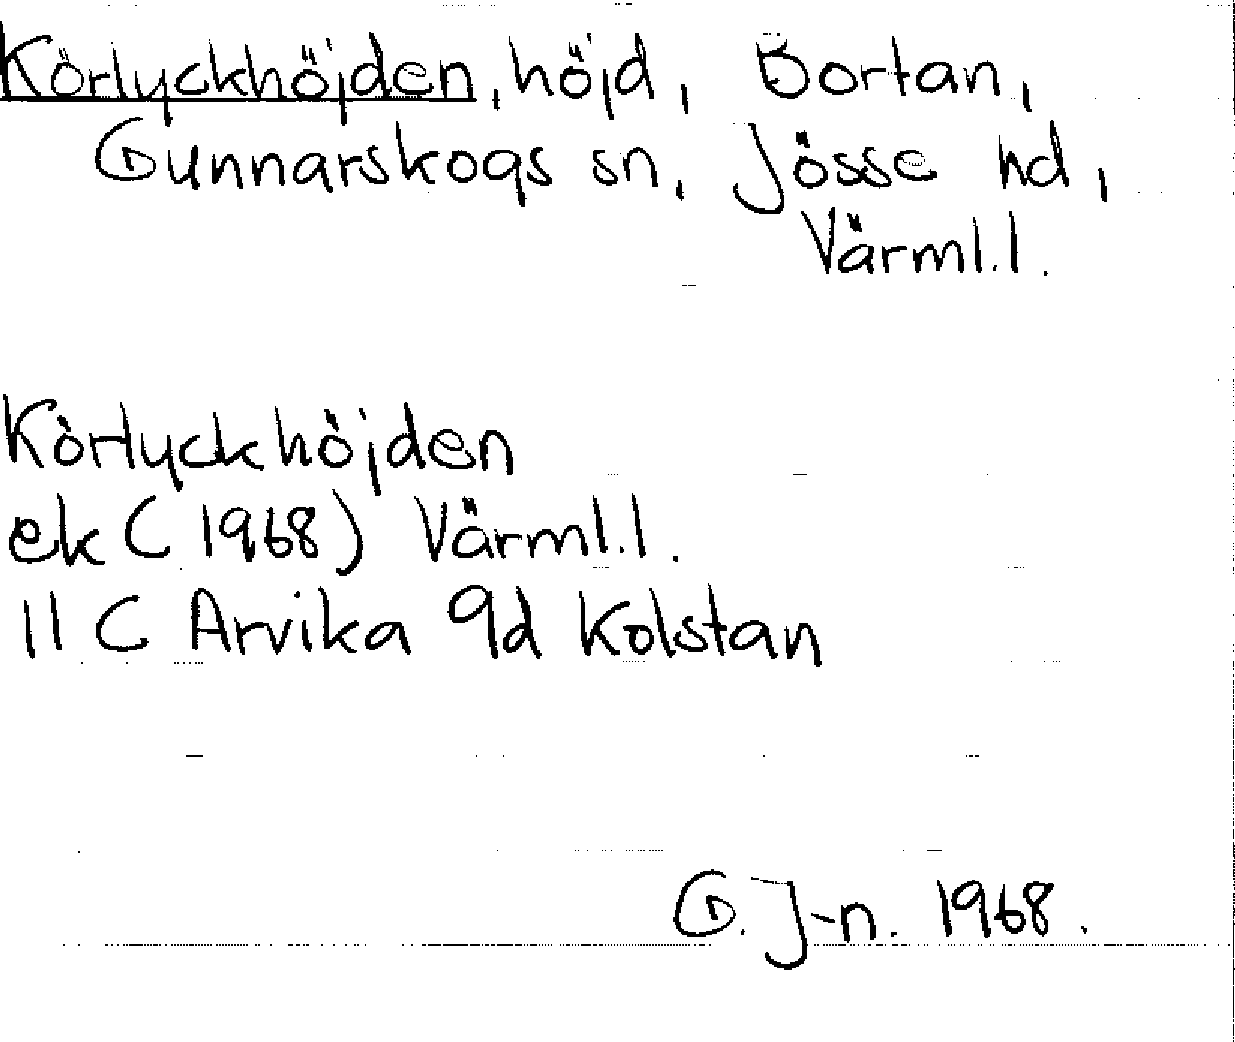 Körlyckhöjden, höjd, Bortan,
Gunnarskogs sn, Jösse hd,
Värml.l.
Körlyckhöjden
ek (1968) Värml.l.
11 C Arvika 9d Kolstan
G. J-n. 1968.